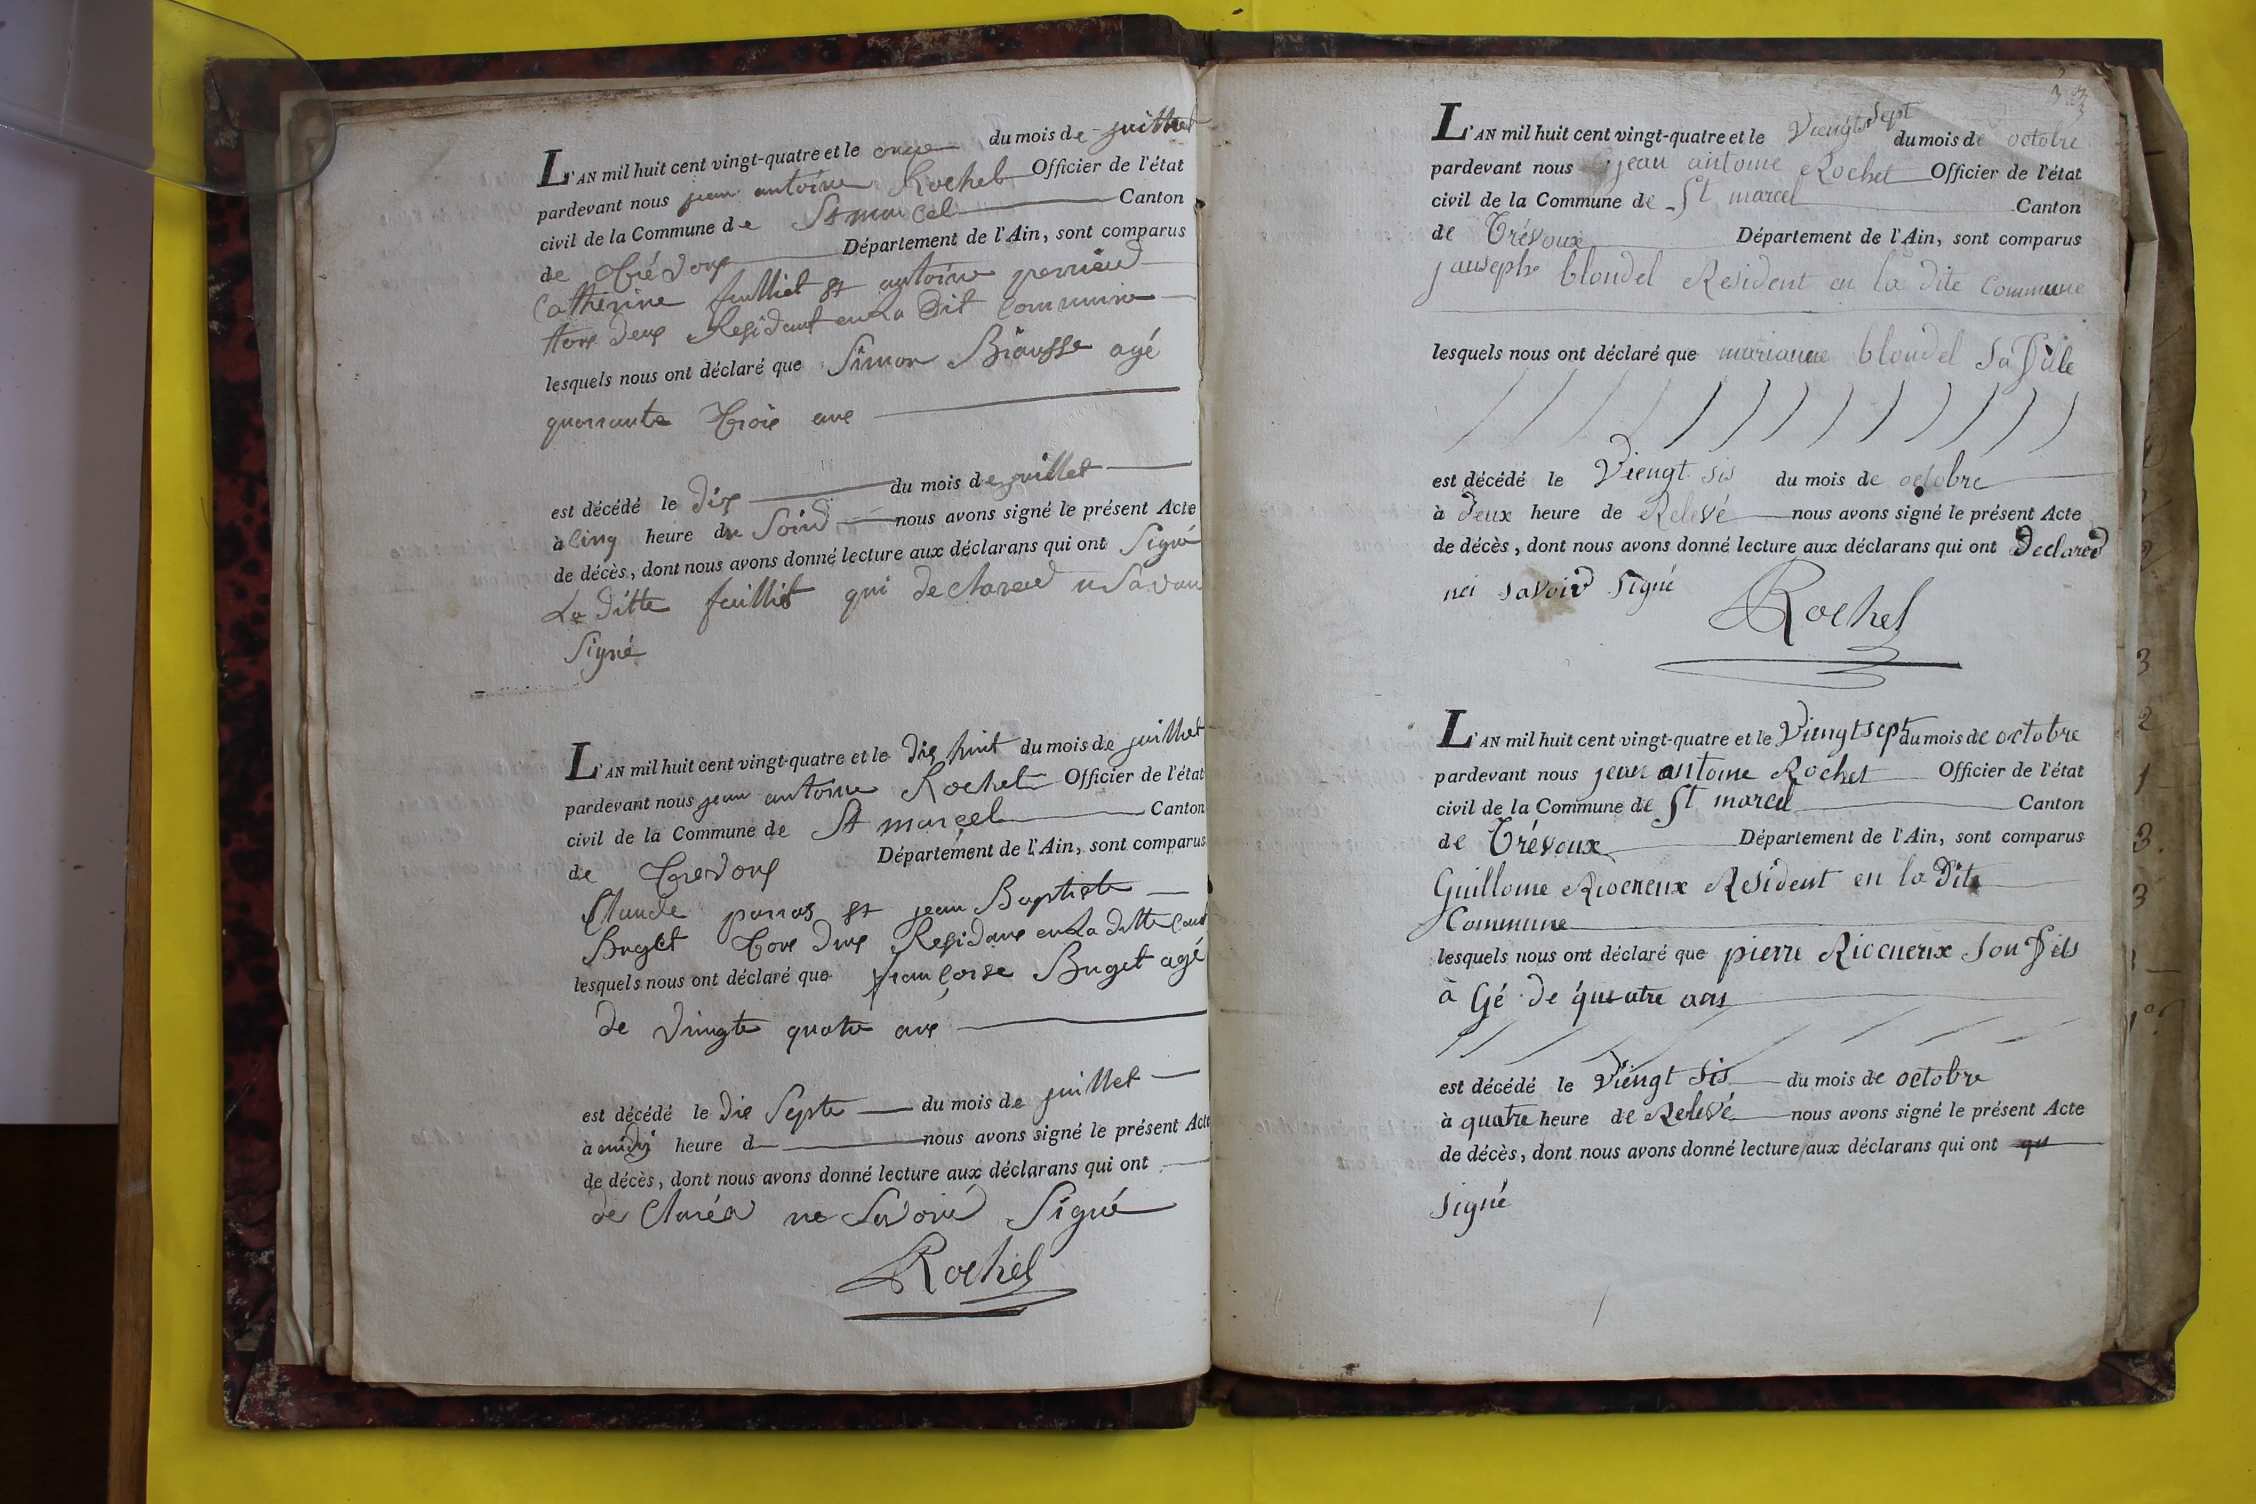 L'AN mil huit cent vingt-quatre et le onze du mois de juillet
pardevant nous jean antoine Rochet Officier de l'état
civil de la Commune de St marcel Canton
de Trévoux Département de l'Ain, sont comparus
Catherine feulliet et antoine perrieud
tors deux Residant en La Dit Commune
lesquels nous ont déclaré que Simon Brausse agé
quarrante trois ans
est décédé le dix du mois de juillet
à cinq heure du Soird nous avons signé le présent Acte
de décès, dont nous avons donné lecture aux déclarans qui ont Signé
La ditte feuilliet qui declareud
Signé
L'AN mil huit cent vingt-quatre et le dix huit du mois de juillet
pardevant nous jean antoine Rochet Officier de l'état
civil de la Commune de St marcel Canton
de Trevoux Département de l'Ain, sont comparus
Claude parras et jean Baptiste
Buget tors dux Residans en La ditte Com
lesquels nous ont déclaré que françoise Buget agé
de vingte quatre ans
est décédé le dix Septe du mois de juillet
à midy heure d nous avons signé le présent Acte
de décès, dont nous avons donné lecture aux déclarans qui ont
de Claréa ne Savoird Signé
Rochet
3
L'AN mil huit cent vingt-quatre et le Viengt Sept du mois de octobre
pardevant nous jean antoine Rochet Officier de l'état
civil de la Commune de St marcel Canton
de Trévoux Département de l'Ain, sont comparus
jauseph blondel Resident en la dite Commune
lesquels nous ont déclaré que marianne blondel Sa file
est décédé le Viengt sis du mois de octobre
à deux heure de Relevé nous avons signé le présent Acte
de décès, dont nous avons donné lecture aux déclarans qui ont Declared
nei savoird signé
Rochet
L'AN mil huit cent vingt-quatre et le Viengtsept du mois de octobre
pardevant nous jean antoine Rochet Officier de l'état
civil de la Commune de St marcel Canton
de Trévoux Département de l'Ain, sont comparus
Guillome Resident en la Dite
Commune
lesquels nous ont déclaré que pierre Son fils
à Gé de quatre ans
est décédé le Viengt sis du mois de octobre
à quatre heure de Relevé nous avons signé le présent Acte
de décès, dont nous avons donné lecture aux déclarans qui ont qu
signé